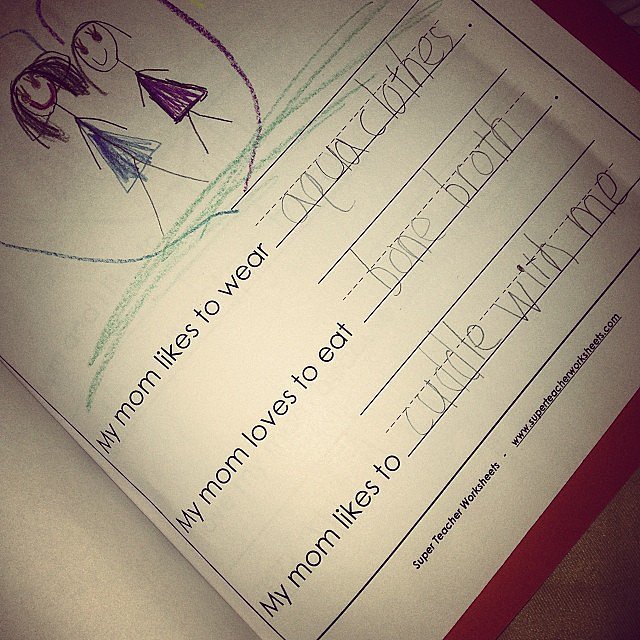 My mom likes to wear aqua clothes.
My mom loves to eat bone broth.
My mom likes to cuddle with me
Super Teacher Worksheets - www.superteacherworksheets.com